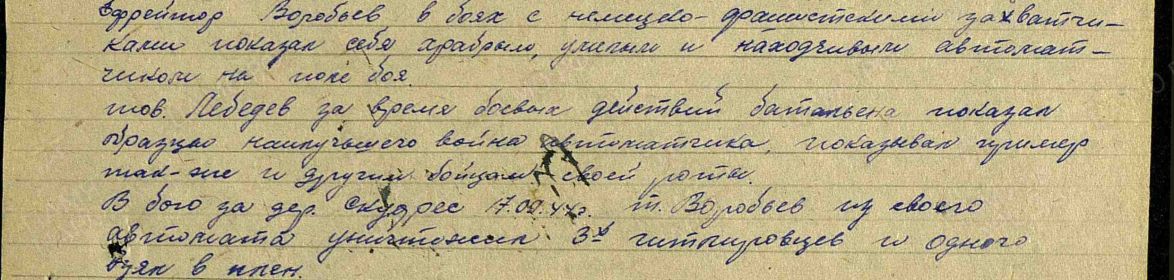 Ефрейтор Воробьев в боях с немецко-фашистскими захватчи-
ками показал себя храбрым, умелым и находчивым автомат-
чиком на поле боя.
тов. Лебедев за время боевых действий батальена показал
образцы наилучьшего война автоматчика, показывал пример
так-же и другим бойцам своей роты.
В бою за дер. Скудрес 17.09.44г. т. Воробьев из своего
автомата уничтожил 3х гитлировцев и одного
взял в плен.